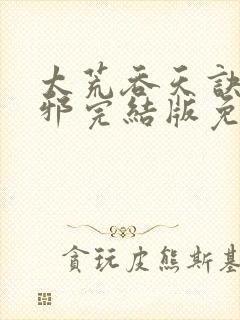 大荒吞天訣
邪完結版免
貪玩皮熊斯基